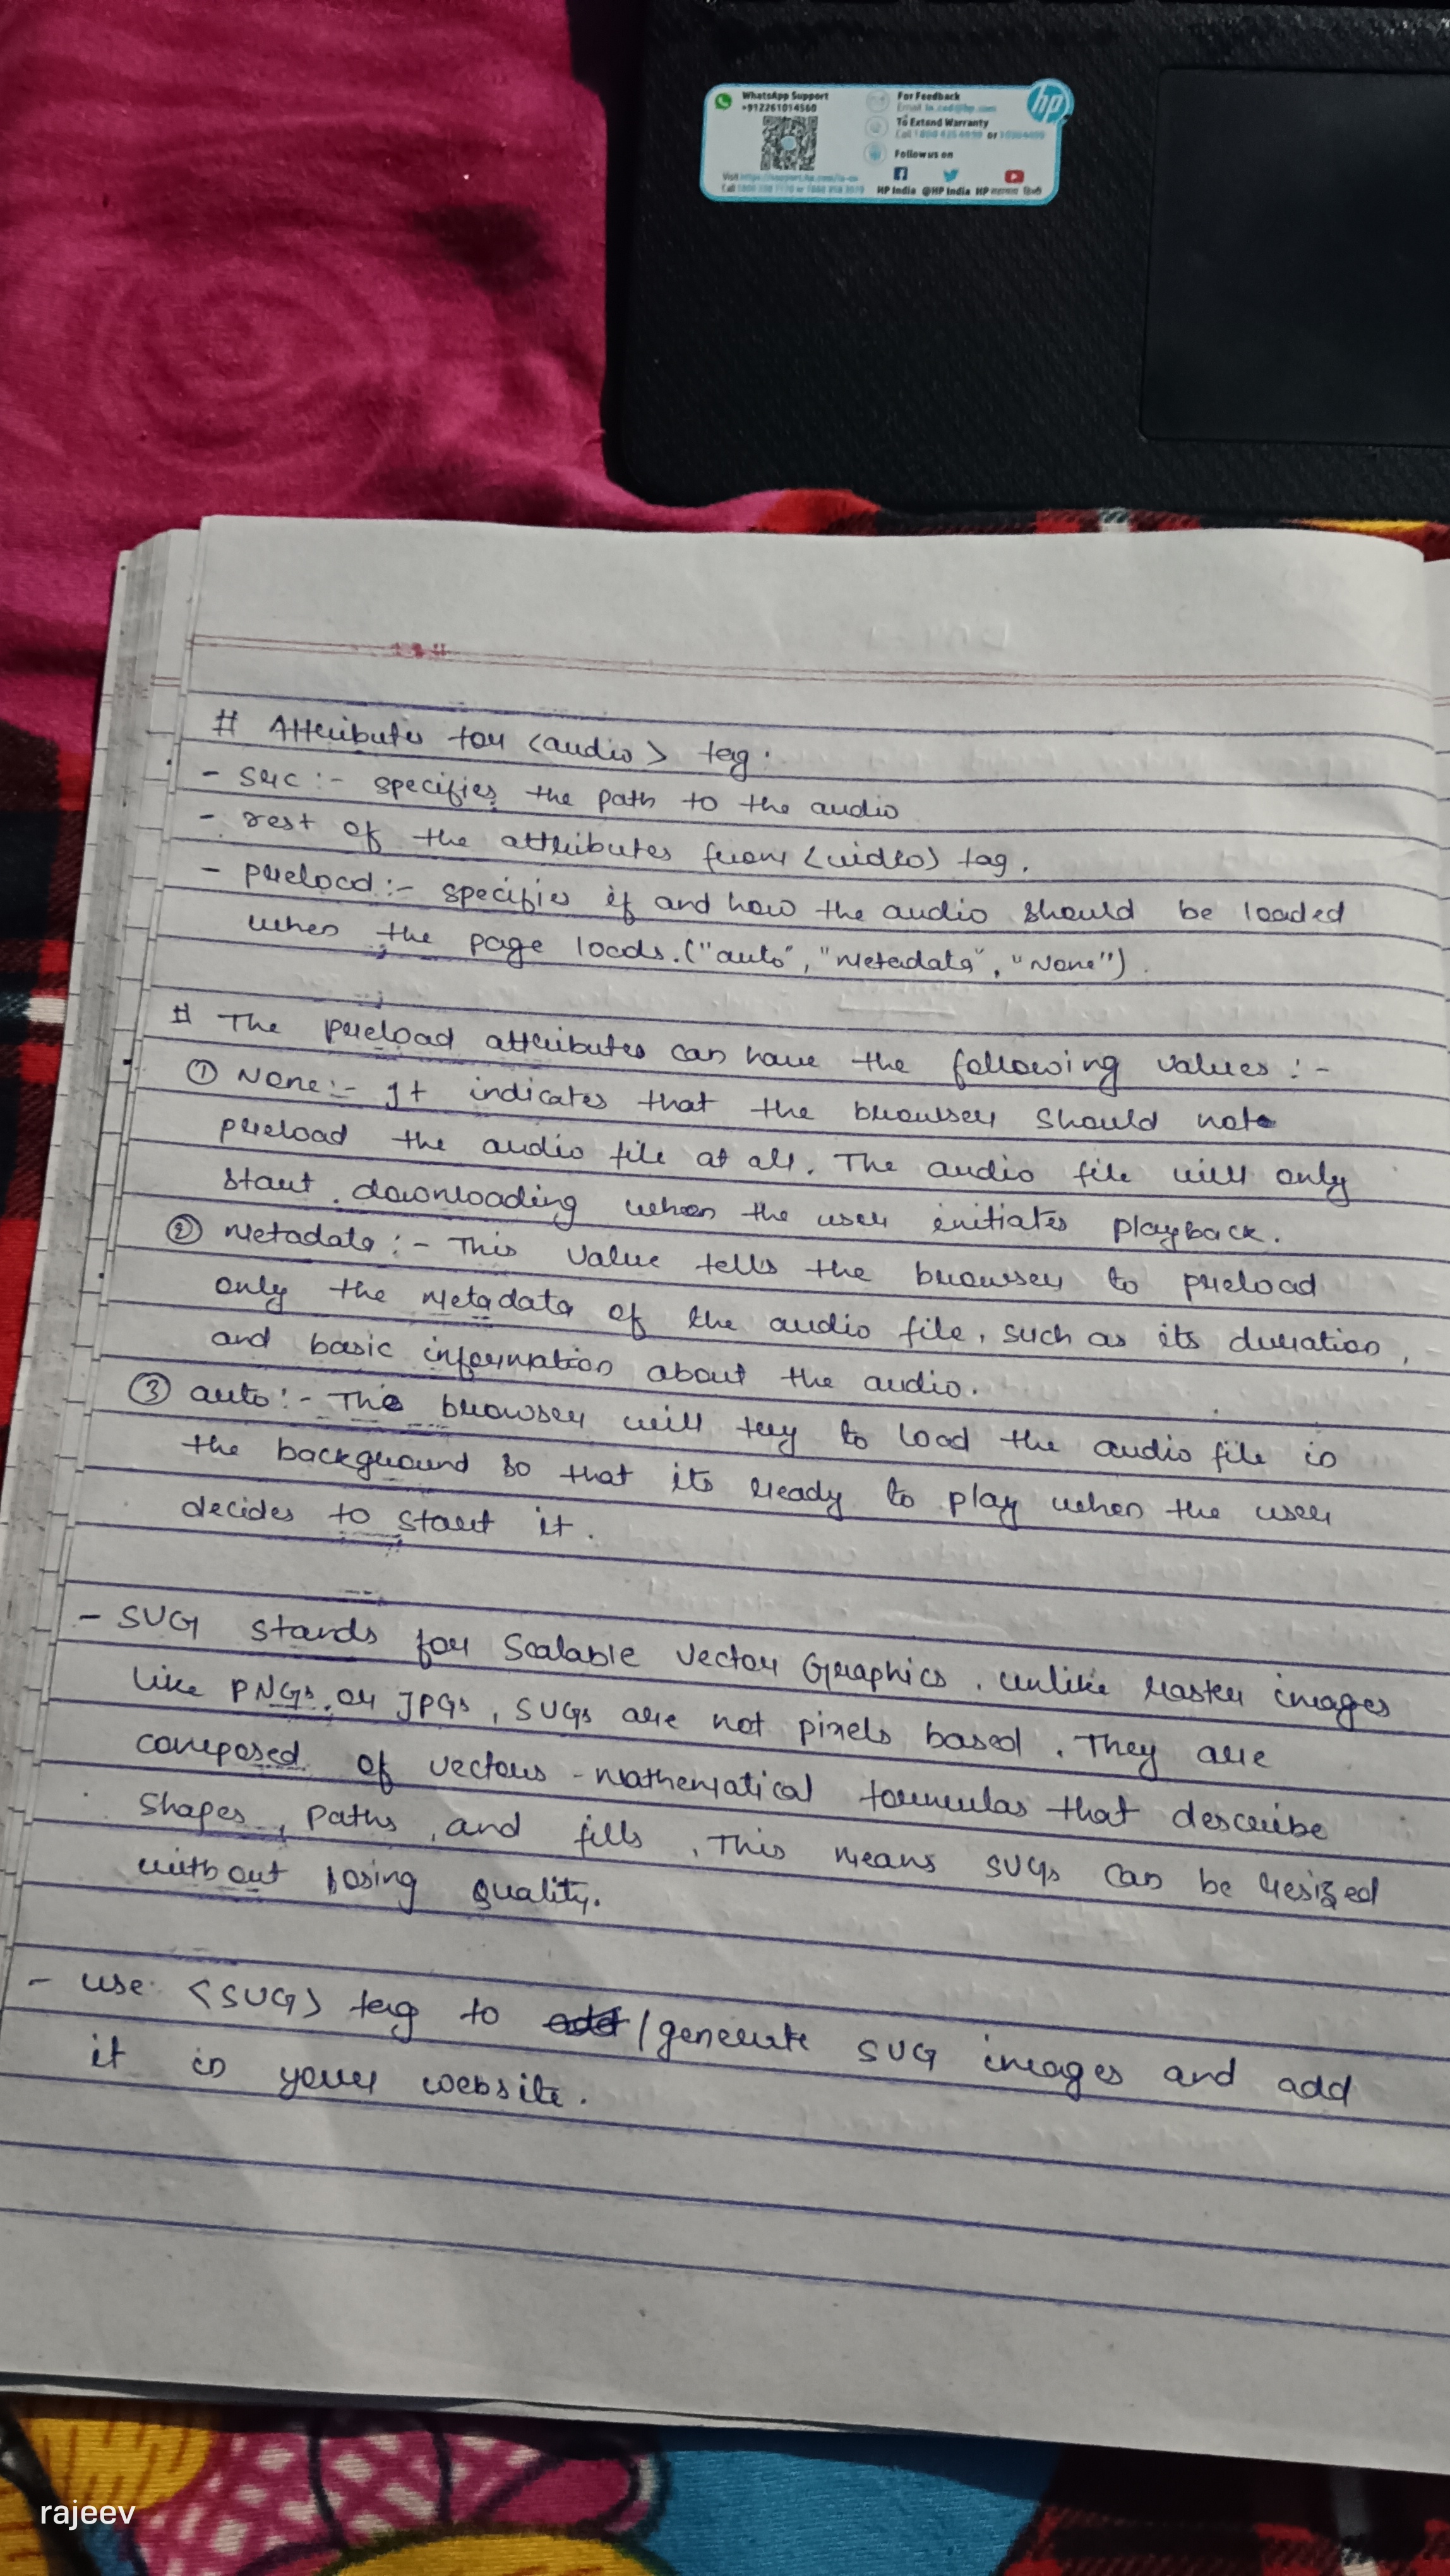 WhatsApp Support
+912261014560
For Feedback
To Extend Warranty
or
Follow us on
hp
Visit
HP India @HP India HP
# Attributes for <audio> tag.
- src :- specifies the path to the audio
- rest of the attributes from <video> tag.
- preload :- specifies if and how the audio should be loaded
when the page loads. ("auto", "metadata", "None").
# The preload attributes can have the following values :-
① None :- It indicates that the browser should not
preload the audio file at all. The audio file will only
start downloading when the user initiates playback.
② Metadata :- This value tells the browser to preload
only the metadata of the audio file, such as its duration,
and basic information about the audio.
③ auto :- The browser will try to load the audio file in
the background so that its ready to play when the user
decides to start it.
- SVG stands for Scalable Vector Graphics. unlike raster images
like PNGs or JPGs, SVGs are not pixels based. They are
composed of vectors - mathematical formulas that describe
shapes, paths, and fills. This means SVGs can be resized
without losing quality.
- use <SVG> tag to add/generate SVG images and add
it in your website.
rajeev